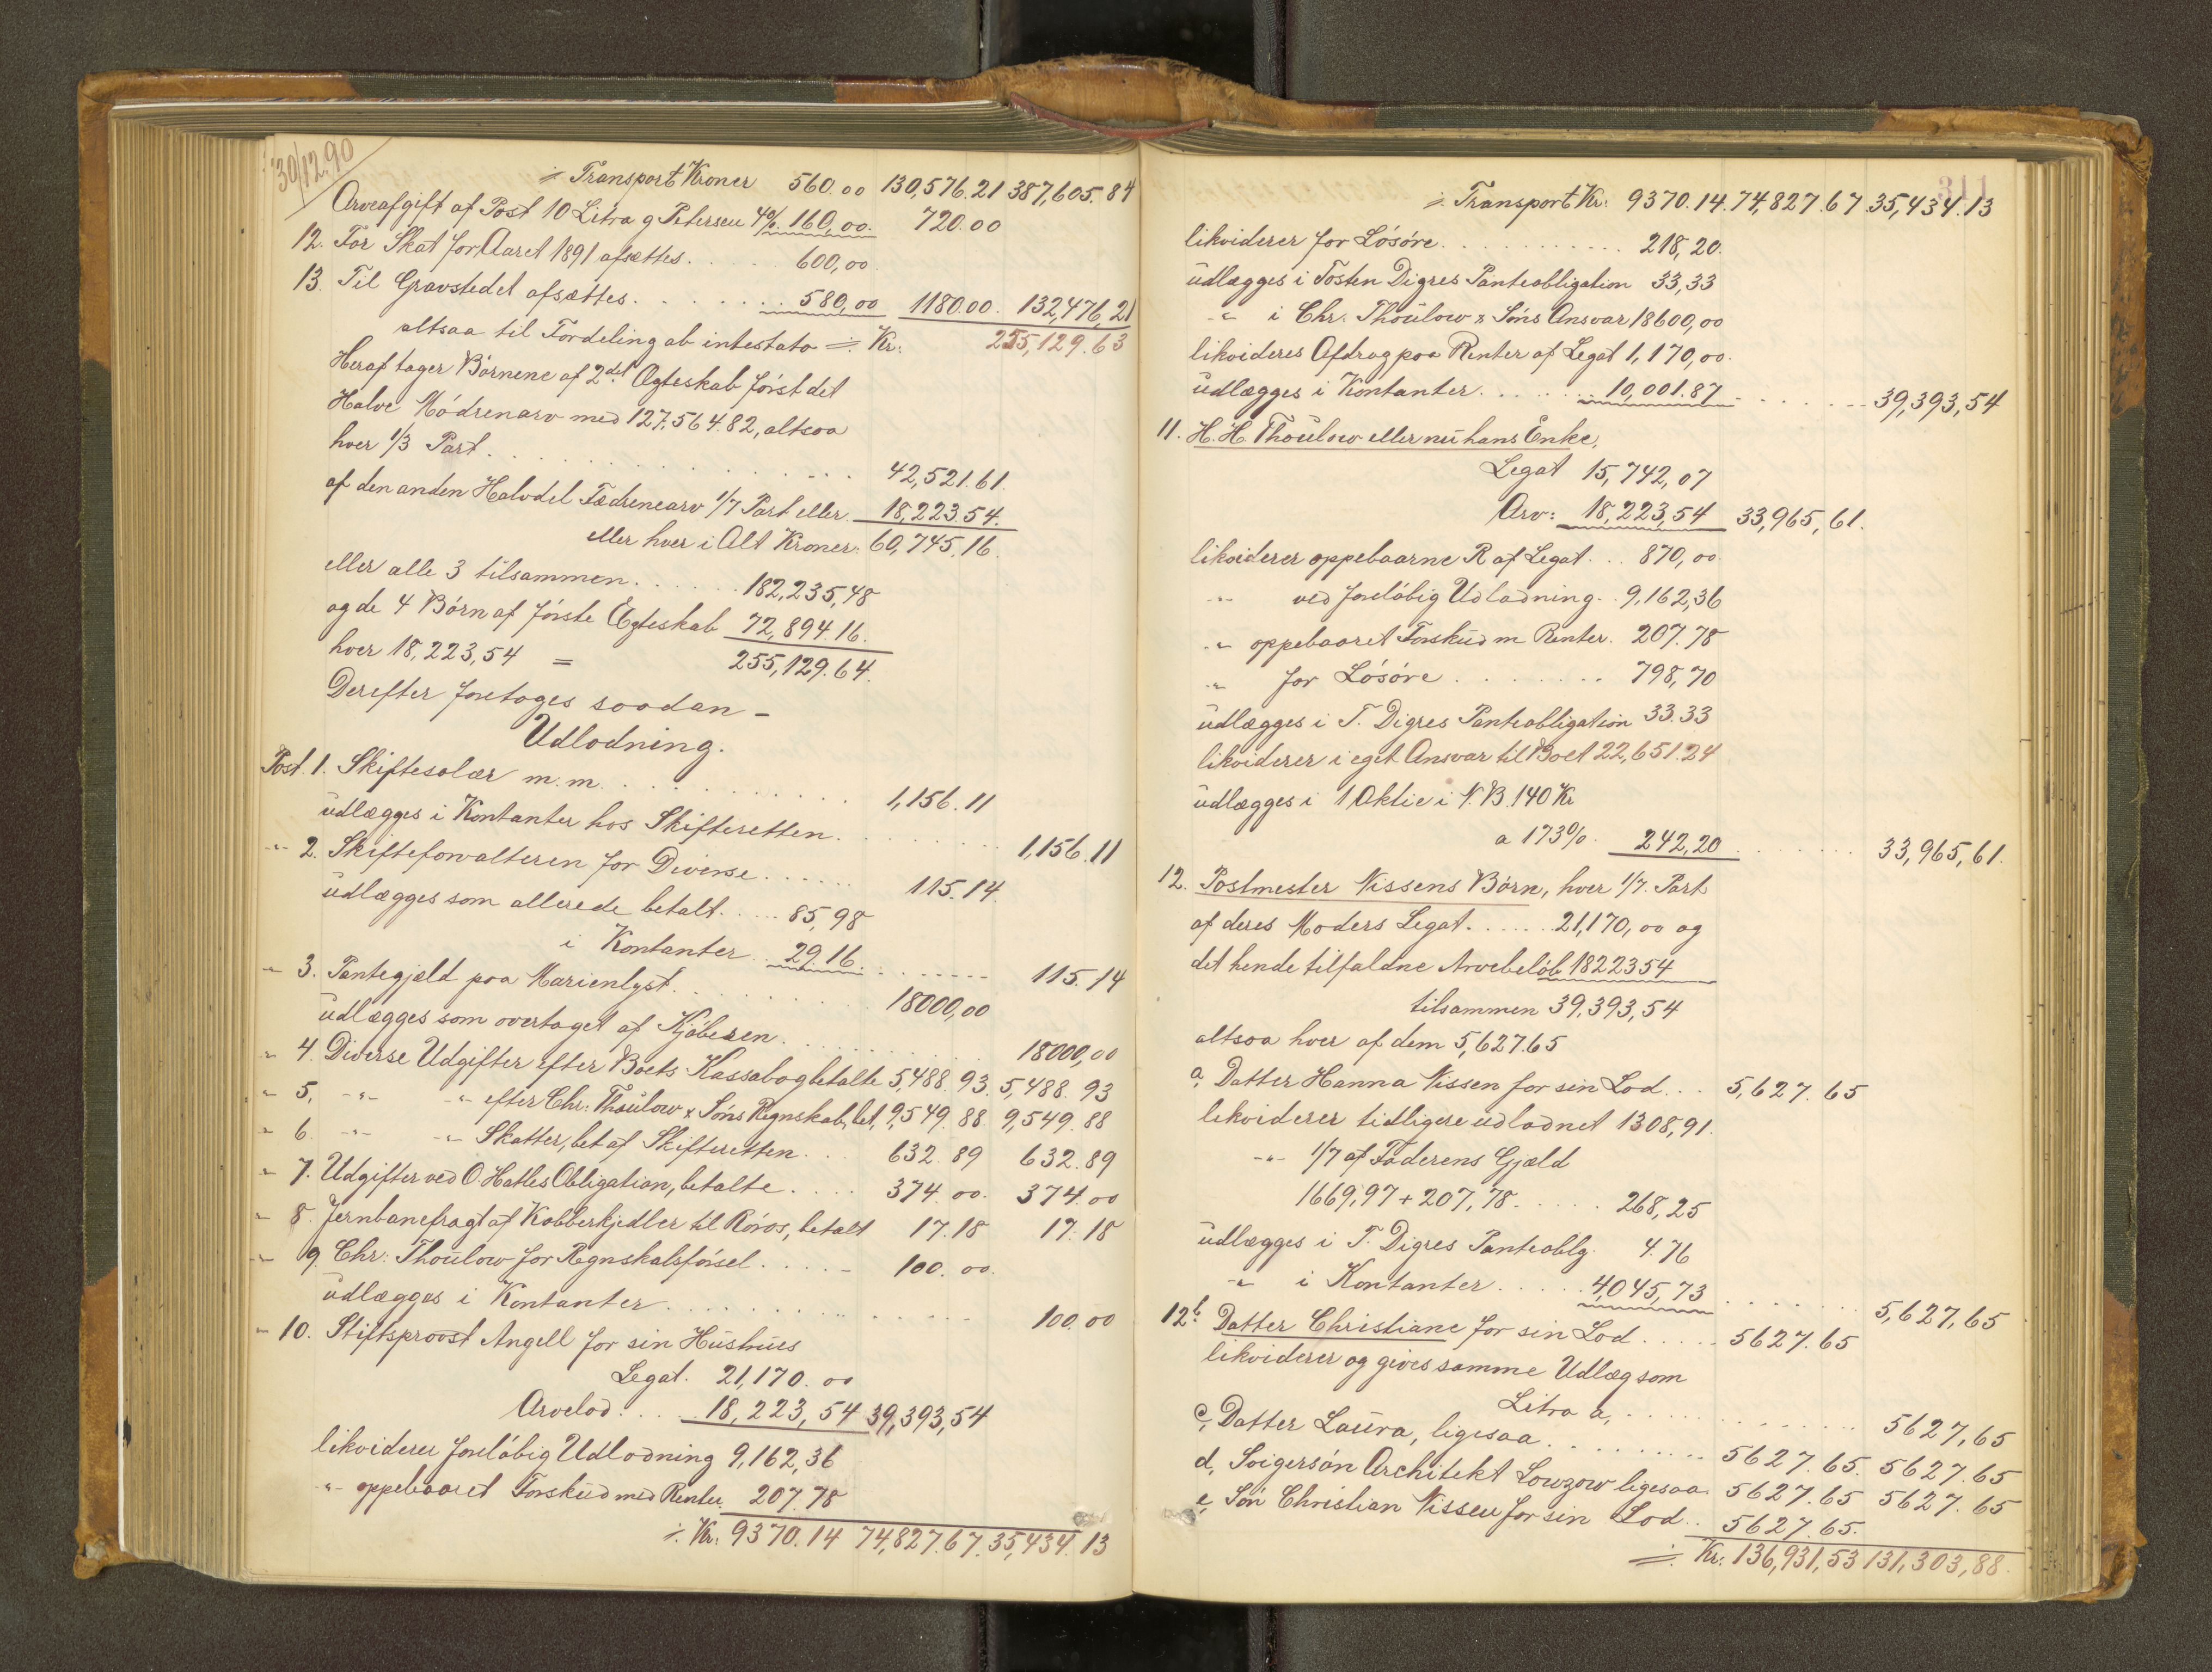 30/12.90
÷ Transport Kroner 560.00 130,576.21 387,605.84
Arveafgift af Post 10 Litra g Petersen 4% 160,00. 720.00
12. For Skat for Aaret 1891 afsættes. . . . 600,00
13. Til Gravstedet afsættes. . . . . . . 580,00 1180.00. 132,476,21
altsaa til Fordeling ab intestato ÷ Kr: 255,129.63
Heraf tager Börnene af 2det Ægteskab först det
Halve Mödrenarv med 127,564.82, altsaa
hver 1/3 Part. . . . . . . . . . . 42,521.61.
af den anden Halvdel Fædrenearv 1/7 Part eller 18,223.54.
eller hver i Alt Kroner: 60,745.16.
eller alle 3 tilsammen. . . . . . 182,235,48
og de 4 Börn af förste Ægteskab 72,894.16.
hver 18,223,54 = 255,129.64.
Derefter foretages saadan –
Udlodning.
Post. 1. Skiftesalær m.m. . . . . . . . . . 1,156.11
udlægges i Kontanter hos Skifteretten. . . . . . . . 1,156.11
-"- 2. Skifteforvalteren for Diverse. . . . . . 115.14.
udlægges som allerede betalt. . . . 85,98
i Kontanter. . 29.16. . . . . . . 115.14
" 3. Pantegjæld paa Marienlyst. . . . . . . . 18000,00
udlægges som overtaget af Kjöberen. . . . . . . . . 18000,00
" 4. Diverse Udgifter efter Boets Kassabog betalte 5,488.93. 5,488.93
" 5. -"- -"- efter Chr: Thaulow & Söns Regnskab, bet, 9,549.88 9,549.88
" 6. -"- -"- Skatter, bet af Skifteretten. . . 632.89 632.89
" 7. Udgifter ved O. Hatles Obligation, betalte. . . . 374.00. 374.00
" 8. Jernbanefragt af Kobberkjedler til Röros, betalt 17.18 17.18
" 9. Chr: Thaulow for Regnskabsförsel. . . . . 100.00.
udlægges i Kontanter. . . . . . . . . . . . . . 100.00
" 10. Stiftsprovst Angell for sin Hustrues
Legat. 21,170.00
Arvelod. . . . 18,223,54 39,393,54
likviderer foreløbig Udlodning 9,162,36
-"- oppebaaret Forskud med Renter 207.78
÷ Kr: 9370.14 74,827.67. 35,434.13
311
÷ Transport Kr: 9370.14. 74,827.67 35,434.13
likviderer for Lösöre. . . . . . . . . . . 218,20.
udlægges i Tosten Digres Panteobligation 33,33
-"- i Chr: Thaulow & Söns Ansvar 18600,00
likvideres Afdrag paa Renter af Legat 1,170,00.
udlægges i Kontanter. . . . . . . 10,001.87 . . . . . . 39,393,54
11. H. H. Thaulow eller nu hans Enke,
Legat 15,742,07
Arv: 18,223,54 33,965,61.
likviderer oppebaarne R af Legat. . . 870,00.
-"- ved foreløbig Udlodning. . 9,162,36
-"- oppebaaret Forskud m Renter. 207.78
-"- for Lösöre . . . . . . . . 798,70
udlægges i T. Digres Panteobligation 33.33
likviderer i eget Ansvar til Boet 22,651.24
udlægges i 1 Aktie i N.B. 140 Kr
a 173% 242,20 . . . . . . 33,965,61.
12. Postmester Nissens Börn, hver 1/7. Part
af deres Moders Legat. . . . . . 21,170,00 og
det hende tilfaldne Arvebelöb 1822354
tilsammen 39,393,54
altsaa hver af dem 5,627.65
a, Datter Hanna Nissen for sin Lod. . . 5,627.65
likviderer tidligere udlodnet 1308,91.
-"- 1/7 af Faderens Gjæld
1669,97 + 207,78. . . . . . 268,25
udlægges i T. Digres Panteoblg. 4.76
-"- i Kontanter. . . . . 4,045,73 . . . . . . . 5,627,65
12b Datter Christiane for sin Lod. . . . . 5627.65
likviderer og gives samme Udlæg som
Litra a, . . . . . . . . . . . 5627,65
c, Datter Laura, ligesaa. . . . . . . . . 5627.65. 5627.65
d, Svigersön Architekt Lowzow ligesaa 5627.65 5627.65
e, Sön Christian Nissen for sin Lod. . 5627.65.
÷ Kr: 136,931,53 131,303,88.